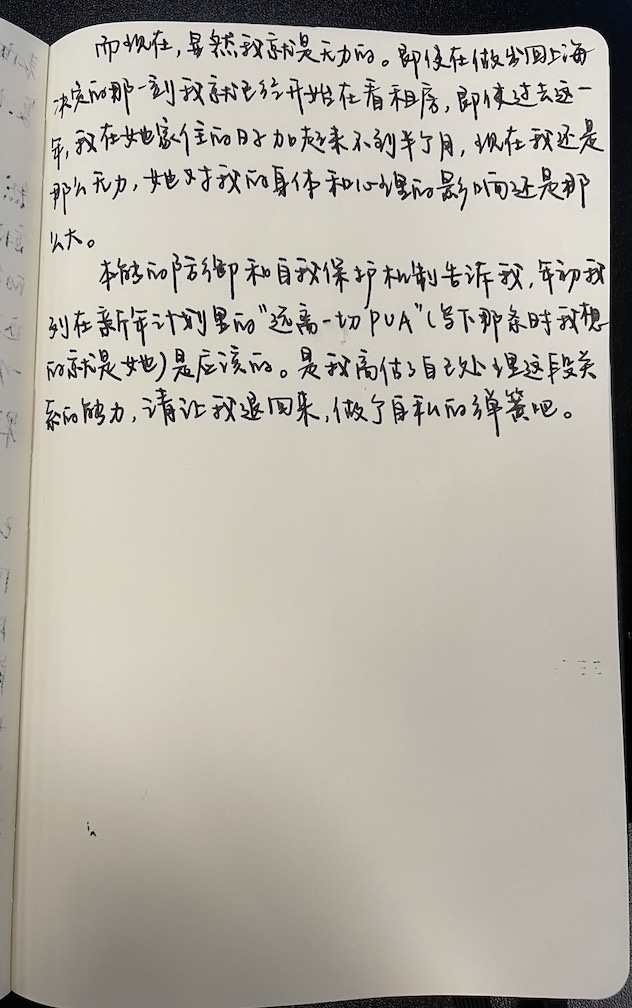 而现在，显然我就是无力的。即使在做出回上海
决定的那一刻我就已经开始在看租房，即使过去这一
年，我在她家住的日子加起来不到半个月，现在我还是
那么无力，她对我的身体和心理的影响还是那
么大。
本能的防御和自我保护机制告诉我，年初我
列在新年计划里的“远离一切PUA”（写下那条时我想
的就是她）是应该的。是我高估了自己处理这段关
系的能力，请让我退回来，做个自私的弹簧吧。